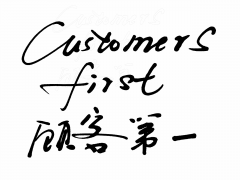 Customers
first
顧客第一